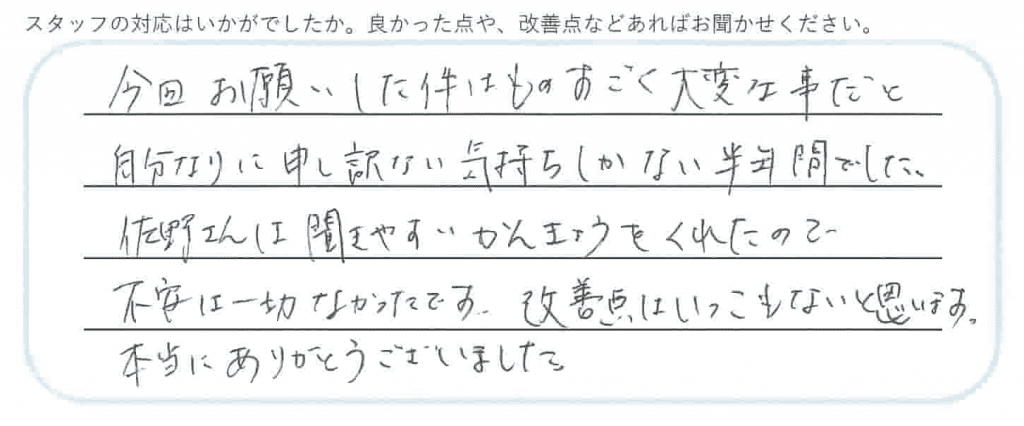 スタッフの対応はいかがでしたか。良かった点や、改善点などあればお聞かせください。
今回お願いした件はものすごく大変な事だと
自分なりに申し訳ない気持ちしかない半年間でした。
佐野さんは聞きやすいかんきょうをくれたので
不安は一切なかったです。改善点はいっこもないと思います。
本当にありがとうございました。